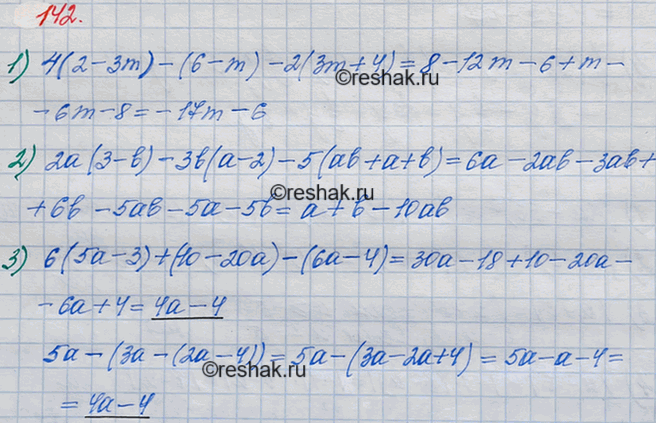 142.
1) 4(2-3m)-(6-m)-2(3m+4)=8-12m-6+m-
©reshak.ru
-6m-8=-17m-6
2) 2a(3-b)-3b(a-2)-5(ab+a+b)=6a-2ab-3ab+
©reshak.ru
+6b-5ab-5a-5b=a+b-10ab
3) 6(5a-3)+(10-20a)-(6a-4)=30a-18+10-20a-
-6a+4=4a-4
5a-(3a-(2a-4))=5a-(3a-2a+4)=5a-a-4=
©reshak.ru
=4a-4